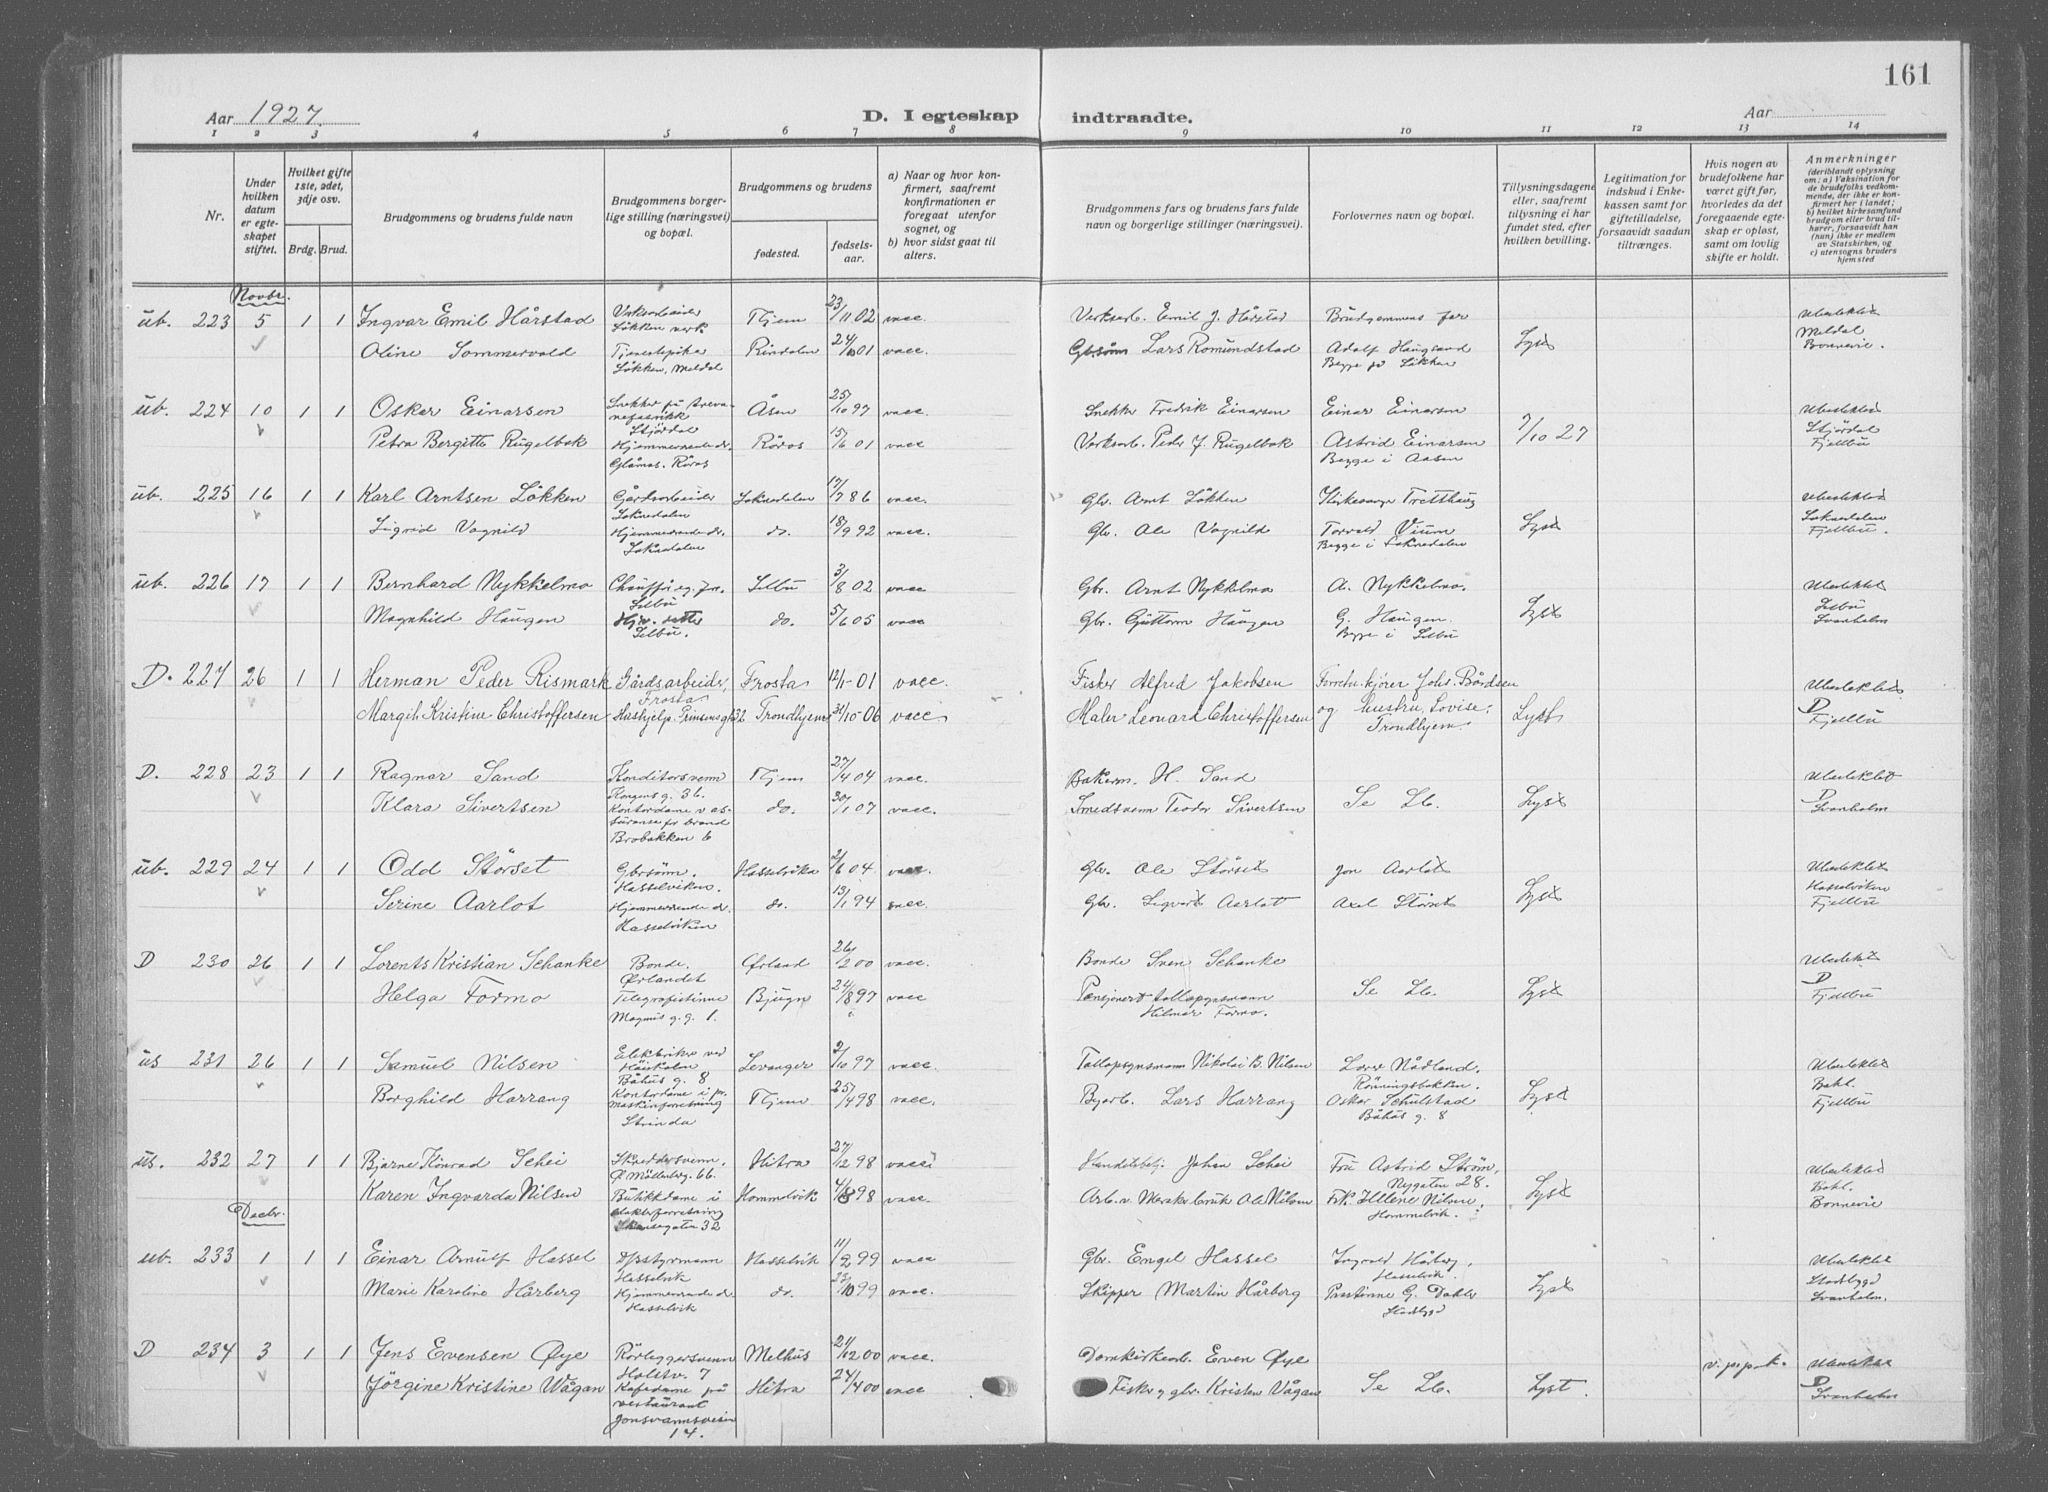 161
Aar 1927. D. I egteskap indtraadte. Aar
1 2 3 4 5 6 7 8 9 10 11 12 13 14
Nr.
Under hvilken datum er egteskapet stiftet.
Hvilket gifte 1ste, 2det, 3dje osv.
Brdg. Brud.
Brudgommens og brudens fulde navn
Brudgommens borgerlige stilling (næringsvei) og bopæl.
Brudgommens og brudens
fødested.
fødselsaar.
a) Naar og hvor konfirmert, saafremt konfirmationen er foregaat utenfor sognet, og
b) hvor sidst gaat til alters.
Brudgommens fars og brudens fars fulde navn og borgerlige stillinger (næringsvei).
Forlovernes navn og bopæl.
Tillysningsdagene eller, saafremt tillysning ei har fundet sted, efter hvilken bevilling.
Legitimation for indskud i Enkekassen samt for giftetilladelse, forsaavidt saadan tiltrænges.
Hvis nogen av brudefolkene har været gift før, hvorledes da det foregaaende egteskap er opløst, samt om lovlig skifte er holdt.
Anmerkninger
(deriblandt oplysning om: a) Vaksination for de brudefolks vedkommende, der ikke er konfirmert her i landet; b) hvilket kirkesamfund brudgom eller brud tilhører, forsaavidt han (hun) ikke er medlem av Statskirken, og c) utensogns bruders hjemsted
Novbr.
ub. 223 5 1 1 Ingvar Emil Hårstad Verksarbeider Løkken verk Thjem 23/11 02 vacc. Verksarb. Emil J. Hårstad Brudgommens far Ubeslektet
Oline Sommervold Tjenestepike Løkken, Meldal Rindalen 24/10 01 vacc. Gbrsønn Lars Romundstad Adolf Haugsand Begge på Løkken Lyst Meldal Bonnevie.
ub. 224 10 1 1 Oskar Einarsen Snekker på trevarefabrikk Stjørdal Åsen 25/10 97 vacc. Snekker Fredrik Einarsen Einar Einarsen Ubeslektet
Petra Bergitte Rugelbak Hjemmeværende dr. Glåmos. Røros Røros 15/6 01 vacc Verksarb. Peder J. Rugelbak Astrid Einarsen Begge i Aasen 7/10 27 Stjørdal Fjellbu
ub. 225 16 1 1 Karl Arntsen Løkken Gårdsarbeider Soknedalen Soknedalen 17/7 86 vacc. Gbr. Arnt Løkken Kirkesanger Tretthaug Ubeslektet
Sigrid Vagnild Hjemmeværende dr. Soknedalen do. 18/9 92 vacc. Gbr. Ole Vagnild Torvald Vium Begge i Soknedalen Lyst Soknedalen Fjellbu.
ub. 226 17 1 1 Bernhard Nykkelmo Chauffør eg. for. Selbu Selbu 3/8 02 vacc Gbr. Arnt Nykkelmo A. Nykkelmo. Ubeslektet
Magnhild Haugen Hjv. datter Selbu. do. 5/6 05 vacc Gbr. Guttorm Haugen G. Haugen. Begge i Selbu Lyst Selbu Svanholm
D. 227 26 1 1 Herman Peder Rismark Gårdsarbeider, Frosta Frosta 12/1-01 vacc. Fisker Alfred Jakobsen Forretn.kjører Johs. Bårdsen Ubeslektet
Margit Kristine Christoffersen Hushjelp. Prinsensgt. 32 Trondhjem 31/10-06 vacc Maler Leonard Christoffersen og hustru Lovise. Trondhjem. Lyst D Fjellbu
D. 228 23 1 1 Ragnar Sand Konditorsvenn Kongens g. 36. Thjem 27/4 04 vacc. Bakerm. H. Sand Ubeslektet
Klara Sivertsen Kontordame v assuranse for brand Brobakken 6 do. 30/1 07 vacc. Smedsvenn Teodor Sivertsen Se Lb. Lyst D Svanholm
ub. 229 24 1 1 Odd Størset Gbrsønn. Hasselviken. Hasselvika 2/6 04 vacc. Gbr. Ole Størset Jon Aarlot Ubeslektet
Serine Aarlot Hjemmeværende dr. Hasselviken do. 13/1 94 vacc. Gbr. Sigvart Aarlot Axel Størset Lyst Hasselviken Fjellbu
D 230 26 1 1 Lorents Kristian Schanke Bonde. Ørlandet Ørland 26/2 00 vacc. Bonde Sven Schanke Ubeslektet
Helga Formo Telegrafistinne Magnus g. g. 1. Bjugn 24/8 97 vacc Pensjonert tollopsynsmann Hilmar Formo. Se Lb. Lyst D Fjellbu
us 231 26 1 1 Samuel Nilsen Elektriker ved Høiskolen Båhus g. 8 Levanger 2/10 97 vacc. Tollopsynsmann Nikolai B. Nilsen Rønningsbakken. Ubeslektet
Borghild Harrang Kontordame i maskinforretning Strinda Thjem 25/4 98 vacc. Byarb. Lars Harrang Oskar Schulstad Båhus g. 8 Lyst Bakl. Fjellbu
us. 232 27 1 1 Bjarne Konrad Schei Skreddersvenn. Ø Møllenbg. 66. Hitra 27/12 98 vacc Handelsbetj. Johan Schei Fru Astrid Strøm, Nygaten 28. Ubeslektet
Karen Ingvarda Nilsen Butikkdame i Hommelvik 4/8 98 vacc. Arb. v. Merakerbruk Ole Nilsen Frk. Hellene Nilsen, Hommelvik. Lyst Bakl. Bonnevie
Decbr.
ub. 233 1 1 1 Einar Arnulf Hassel Hasselvik Hasselvik 11/2 99 vacc Gbr. Engel Hassel Ingvald Hårberg, Hasselvik. Ubeslektet
Marie Karoline Hårberg Hjemmeværende dr. Hasselvik do. 23/10 99 vacc. Skipper Martin Hårberg Prestinne G. Dahle Stadsbygd Lyst Stadsbygd Svanholm.
D 234 3 1 1 Jens Evensen Øye Rørleggersvenn Holstv. 7 Melhus 21/12 00 vacc. Domkirkearb. Even Øye v. p. p. k. Ubeslektet
Jörgine Kristine Vågan Kafedame på restaurant Jonsvannsveien 14. Hitra 24/4 00 vacc Fisker og gbr. Kristen Vågan Se Lb. Lyst. D Svanholm